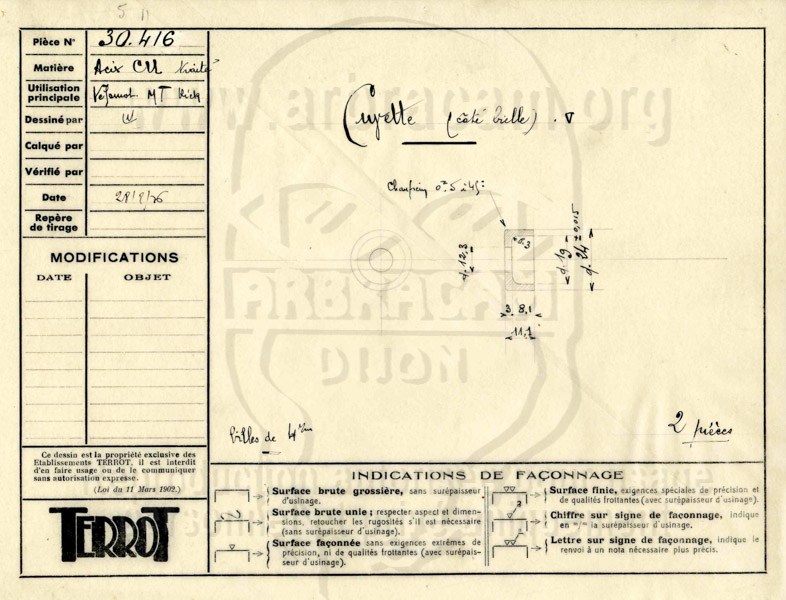 Pièce N° 30.416
Matière Acier CM traité
Utilisation
principale Vélamot. MT Kick
Dessiné par
Calqué par
Vérifié par
Date
Repère
de tirage
MODIFICATIONS
DATE OBJET
Ce dessin est la propriété exclusive des
Etablissements TERROT, il est interdit
d'en faire usage ou de le communiquer
sans autorisation expresse.
(Loi du 11 Mars 1902.)
TERROT
www.arbracam.org
Cuvette (côté bielle)
Chanfrein 0.5 à 45°
d. 12,3
d. 19
d. 24 ± 0,015
3 8,1
11,1
Billes de
2 pièces
ARBRACAM
DIJON
INDICATIONS DE FAÇONNAGE
Surface brute grossière, sans surépaisseur
d'usinage.
Surface brute unie ; respecter aspect et dimen-
sions, retoucher les rugosités s'il est nécessaire
(sans surépaisseur d'usinage).
Surface façonnée sans exigences extrêmes de
précision, ni de qualités frottantes (avec surépais-
seur d'usinage).
Surface finie, exigences spéciales de précision et
de qualités frottantes (avec surépaisseur d'usinage).
Chiffre sur signe de façonnage, indique
en m/m la surépaisseur d'usinage.
Lettre sur signe de façonnage, indique le
renvoi à un nota nécessaire plus précis.